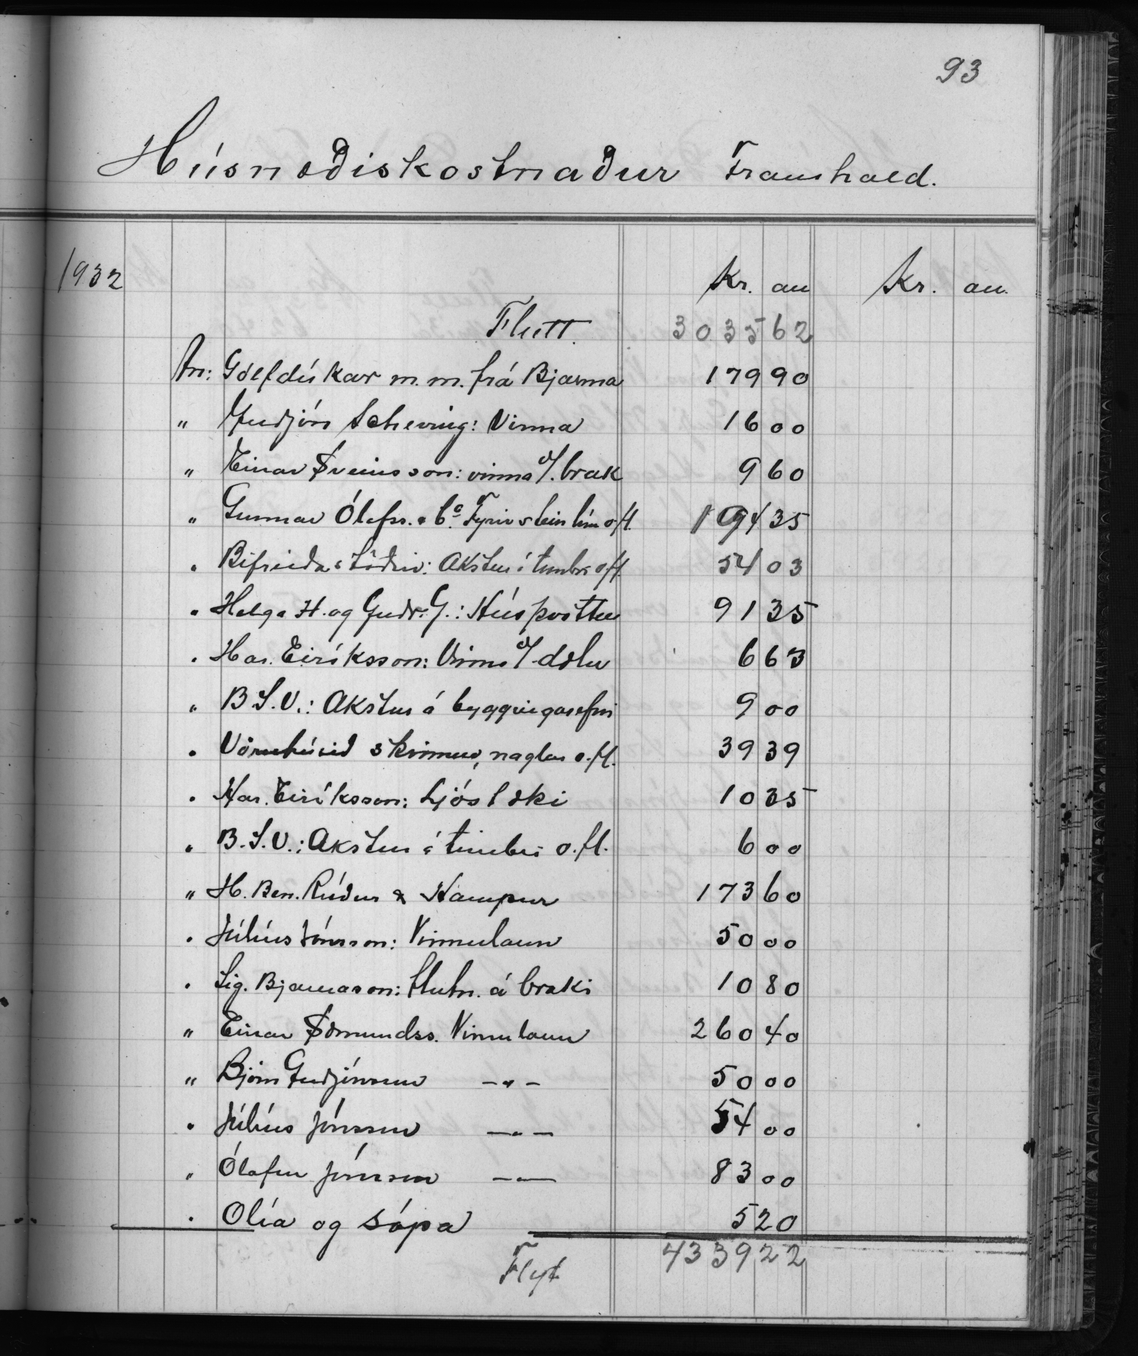 93
Húsnæðiskostnaður Framhald.
1932 Kr. au Kr. au.
Flutt. 3035 62
An: Gólfdúkar m.m. frá Bjarma 179 90
" Guðjón Scheving: Vinna 16 00
" Einar Sveinsson: vinna v/. brak 9 60
" Gunnar Ólafss. & Co. Fyrir stein lím ofl. 194 35
" Bifreiðastöðin: Akstur í timbri ofl. 54 03
" Helga H. og Guðr. G.: Húsþvottur 91 35
" Har. Eiríksson: Vinna v/ dælu 6 63
" B.S.V.: Akstur á byggingarefni 9 00
" Vöruhúsið skrúfur, naglar o.fl. 39 39
" Har. Eiríksson: Ljóstæki 10 35
" B.S.V.: Akstur á timbri o.fl. 6 00
" H. Ben. Rúður & Hampur 173 60
" Júlíus Jónsson: Vinnulaun 50 00
" Sig. Bjarnason: flutn. á braki 10 80
" Einar Sæmundss. Vinnulaun 260 40
" Björn Guðjónsson —"— 50 00
" Júlíus Jónsson —"— 54 00
" Ólafur Jónsson —"— 83 00
" Olía og sápa 5 20
Flyt 4339 22